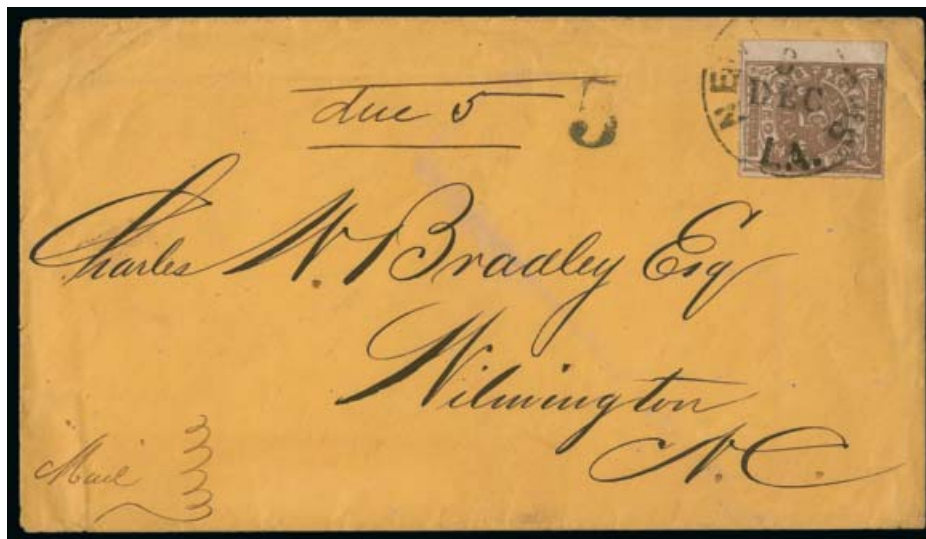 due 5
5
NE
DEC
LA.
Charles W. Bradley Esq
Wilmington
N. C.
Mail